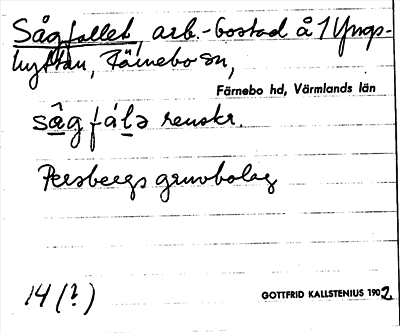 Sågfallet, arb.-bostad å 1 Yngs-
hyttan, Färnebo sn,
Färnebo hd, Värmlands län
så̂gfál̠ə renskr.
Persbergs gruvbolag
14 (?)
GOTTFRID KALLSTENIUS 1902